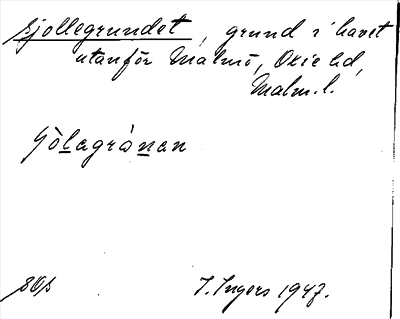 sjollegrundet, grund i havet
utanför Malmö, Oxie hd,
Malm. l.
Gòlagrånan
I. Ingers 1947.